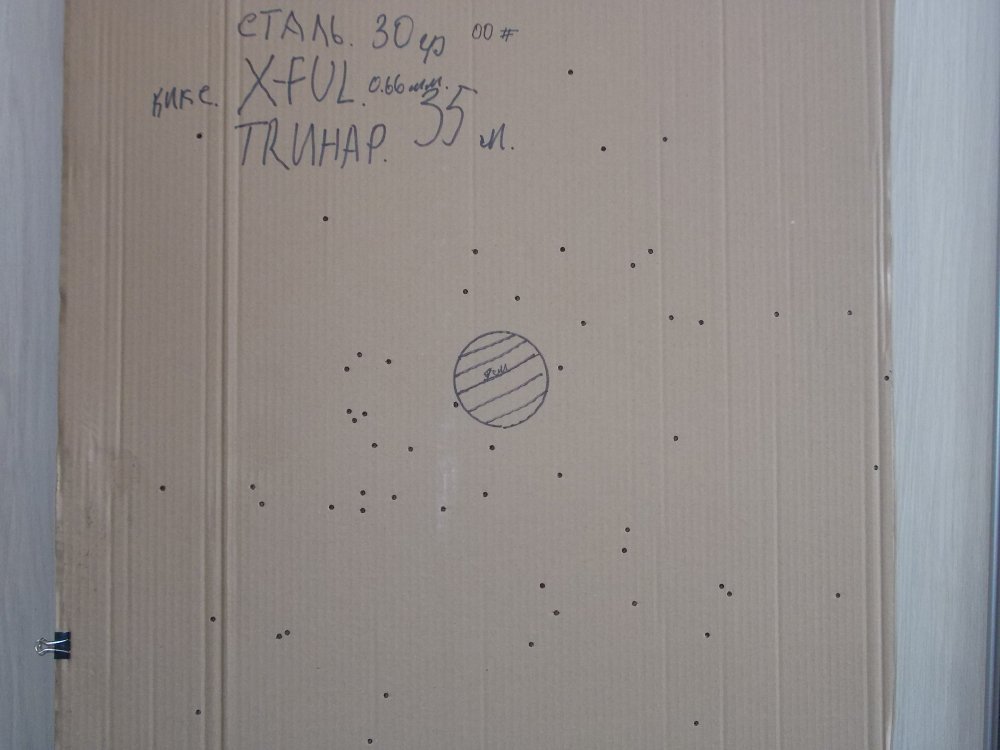 СТАЛЬ. 30 гр 00#
X-FUL. 0.66 мм.
TRИНАР. 35 м.